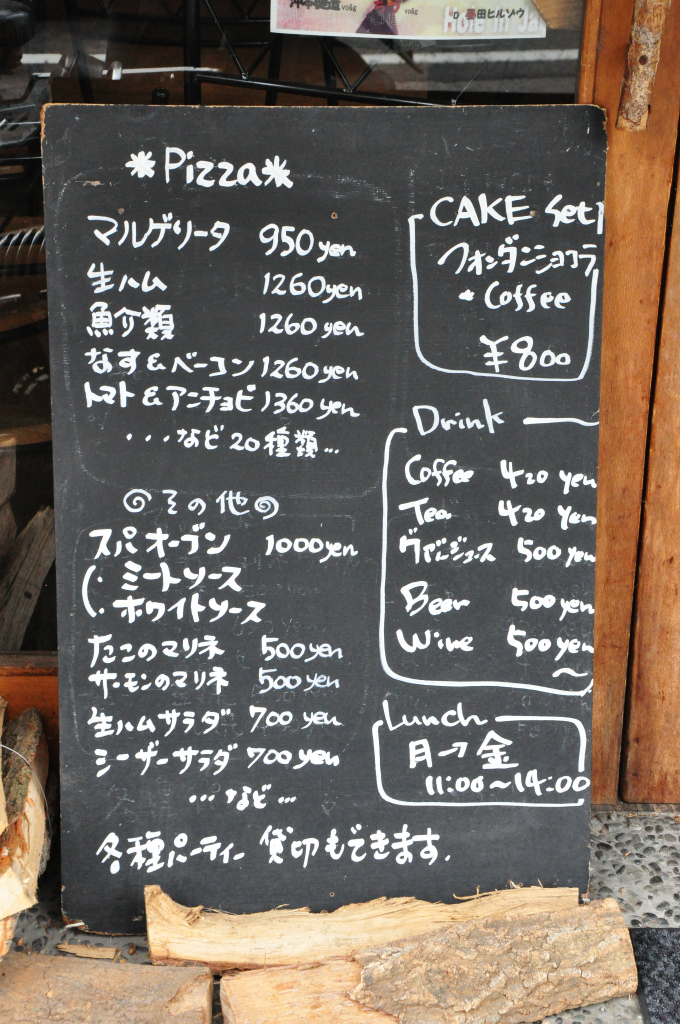 *Pizza*
マルゲリータ 950yen
生ハム 1260yen
魚介類 1260yen
なす&ベーコン 1260yen
トマト&アンチョビ 1360yen
・・・など20種類...
その他
スパオーブン 1000yen
(・ミートソース
・ホワイトソース
たこのマリネ 500yen
サーモンのマリネ 500yen
生ハムサラダ 700yen
シーザーサラダ 700yen
...など...
各種パーティー 貸切もできます.
CAKE set
フォンダンショコラ
Coffee
¥800
Drink
Coffee 420 yen
Tea 420 yen
500yen
Beer 500yen
Wine 500yen
~
Lunch
月→金
11:00~14:00